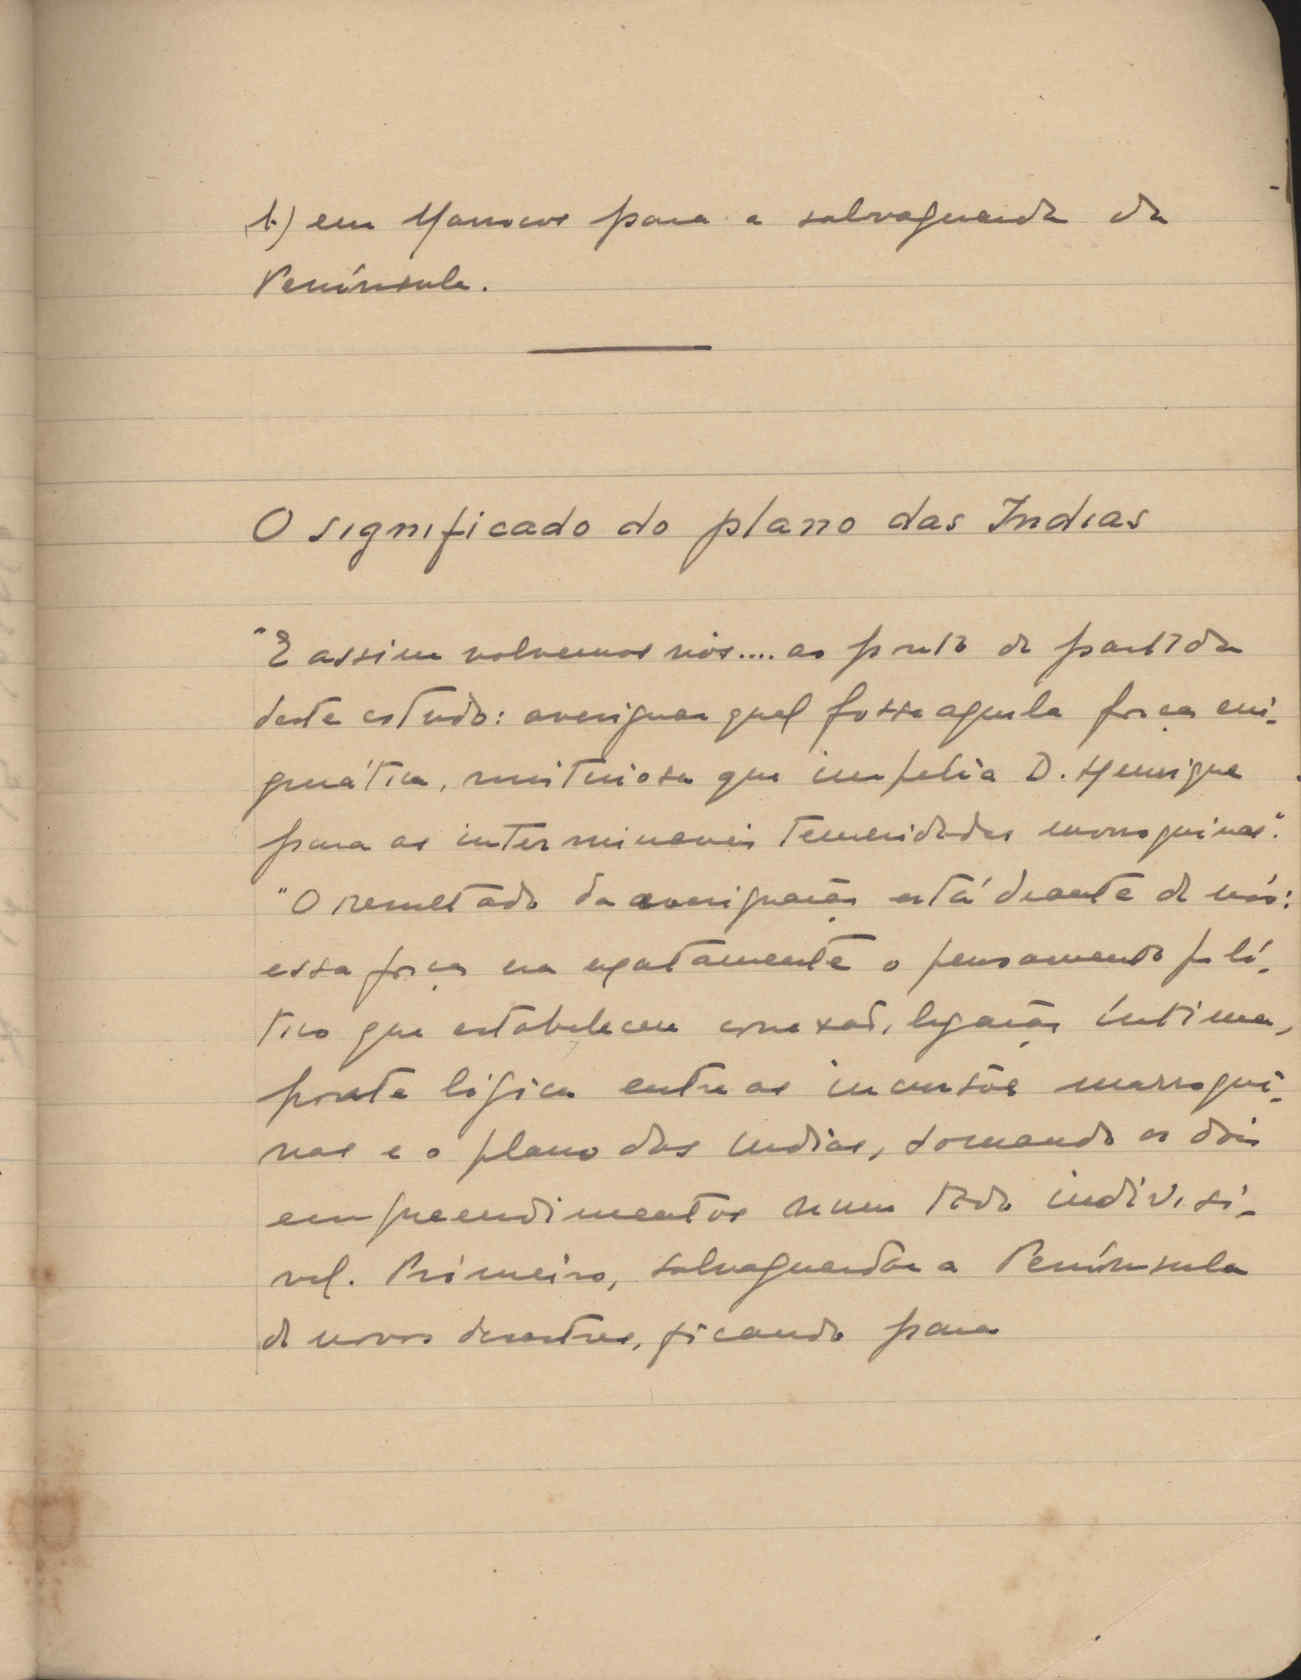 b) em Marrocos para a salvaguarda da
Península.
O significado do plano das Indias
"E assim volvemos nós.... ao ponto de partida
deste estudo: averiguar qual fosse aquela força eni-
gmática, misteriosa que impelia D. Henrique
para as intermináveis temeridades marroquinas".
"O resultado da averiguação está deante de nós:
essa força era exatamente o pensamento polí-
tico que estabeleceu conexão, ligação íntima,
ponte lógica entre as incursões marroqui-
nas e o plano das Indias, tornando os dois
empreendimentos num todo indivisí-
vel. Primeiro, salvaguardar a Península
de novos desastres, ficando para